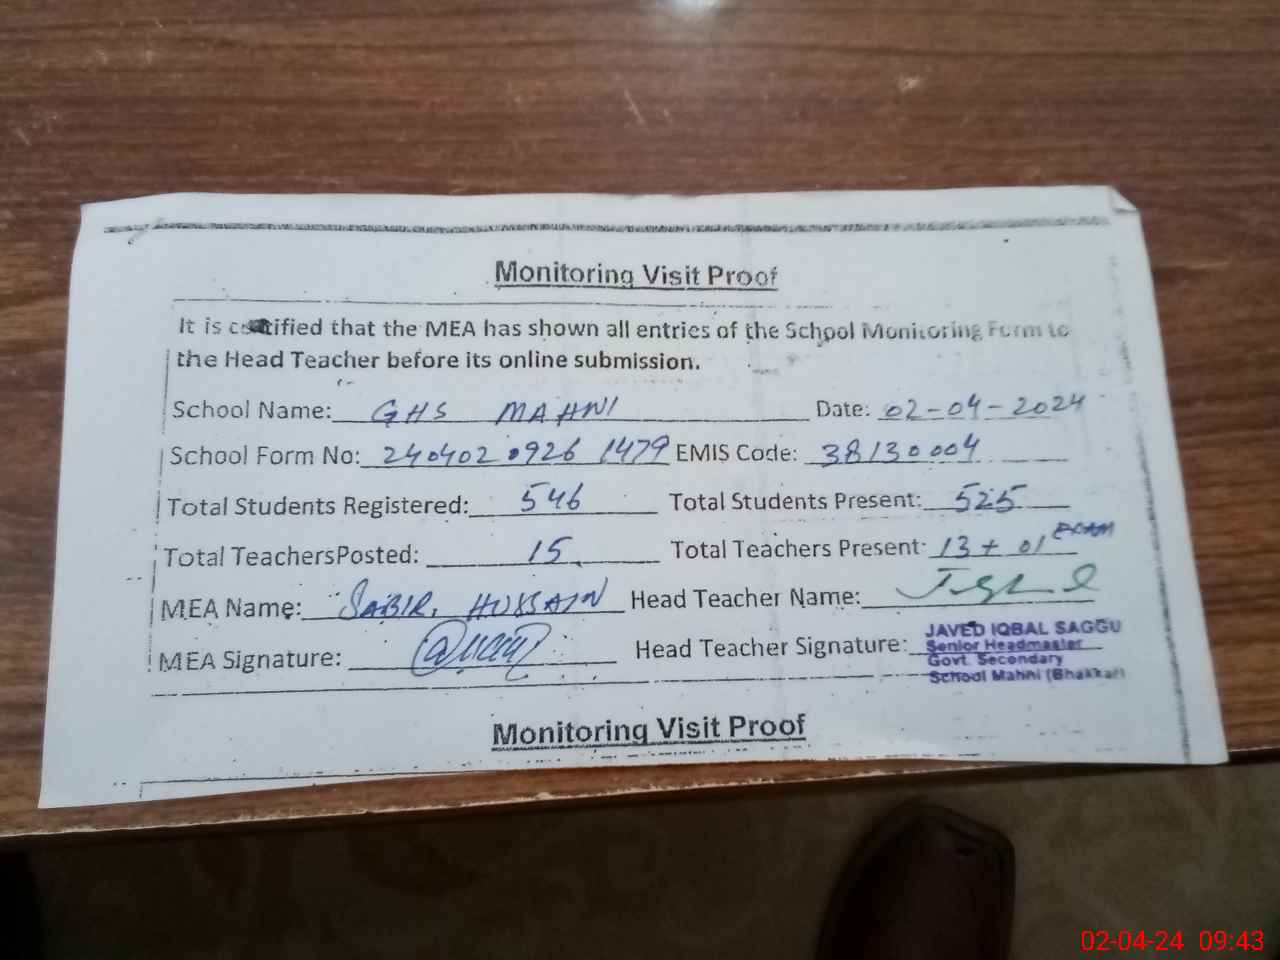 Monitoring Visit Proof
It is certified that the MEA has shown all entries of the School Monitoring Form to
the Head Teacher before its online submission.
School Name: GHS MAHNI Date: 02-04-2024
School Form No: 240402 0926 1479 EMIS Code: 38130004
Total Students Registered: 546 Total Students Present: 525
Total TeachersPosted: 15 Total Teachers Present: 13 + 01 EXAM
MEA Name: SABIR HUSSAIN Head Teacher Name:
MEA Signature: Head Teacher Signature:
JAVED IQBAL SAGGU
Senior Headmaster
Govt. Secondary
School Mahni (Bhakkar)
Monitoring Visit Proof
02-04-24 09:43